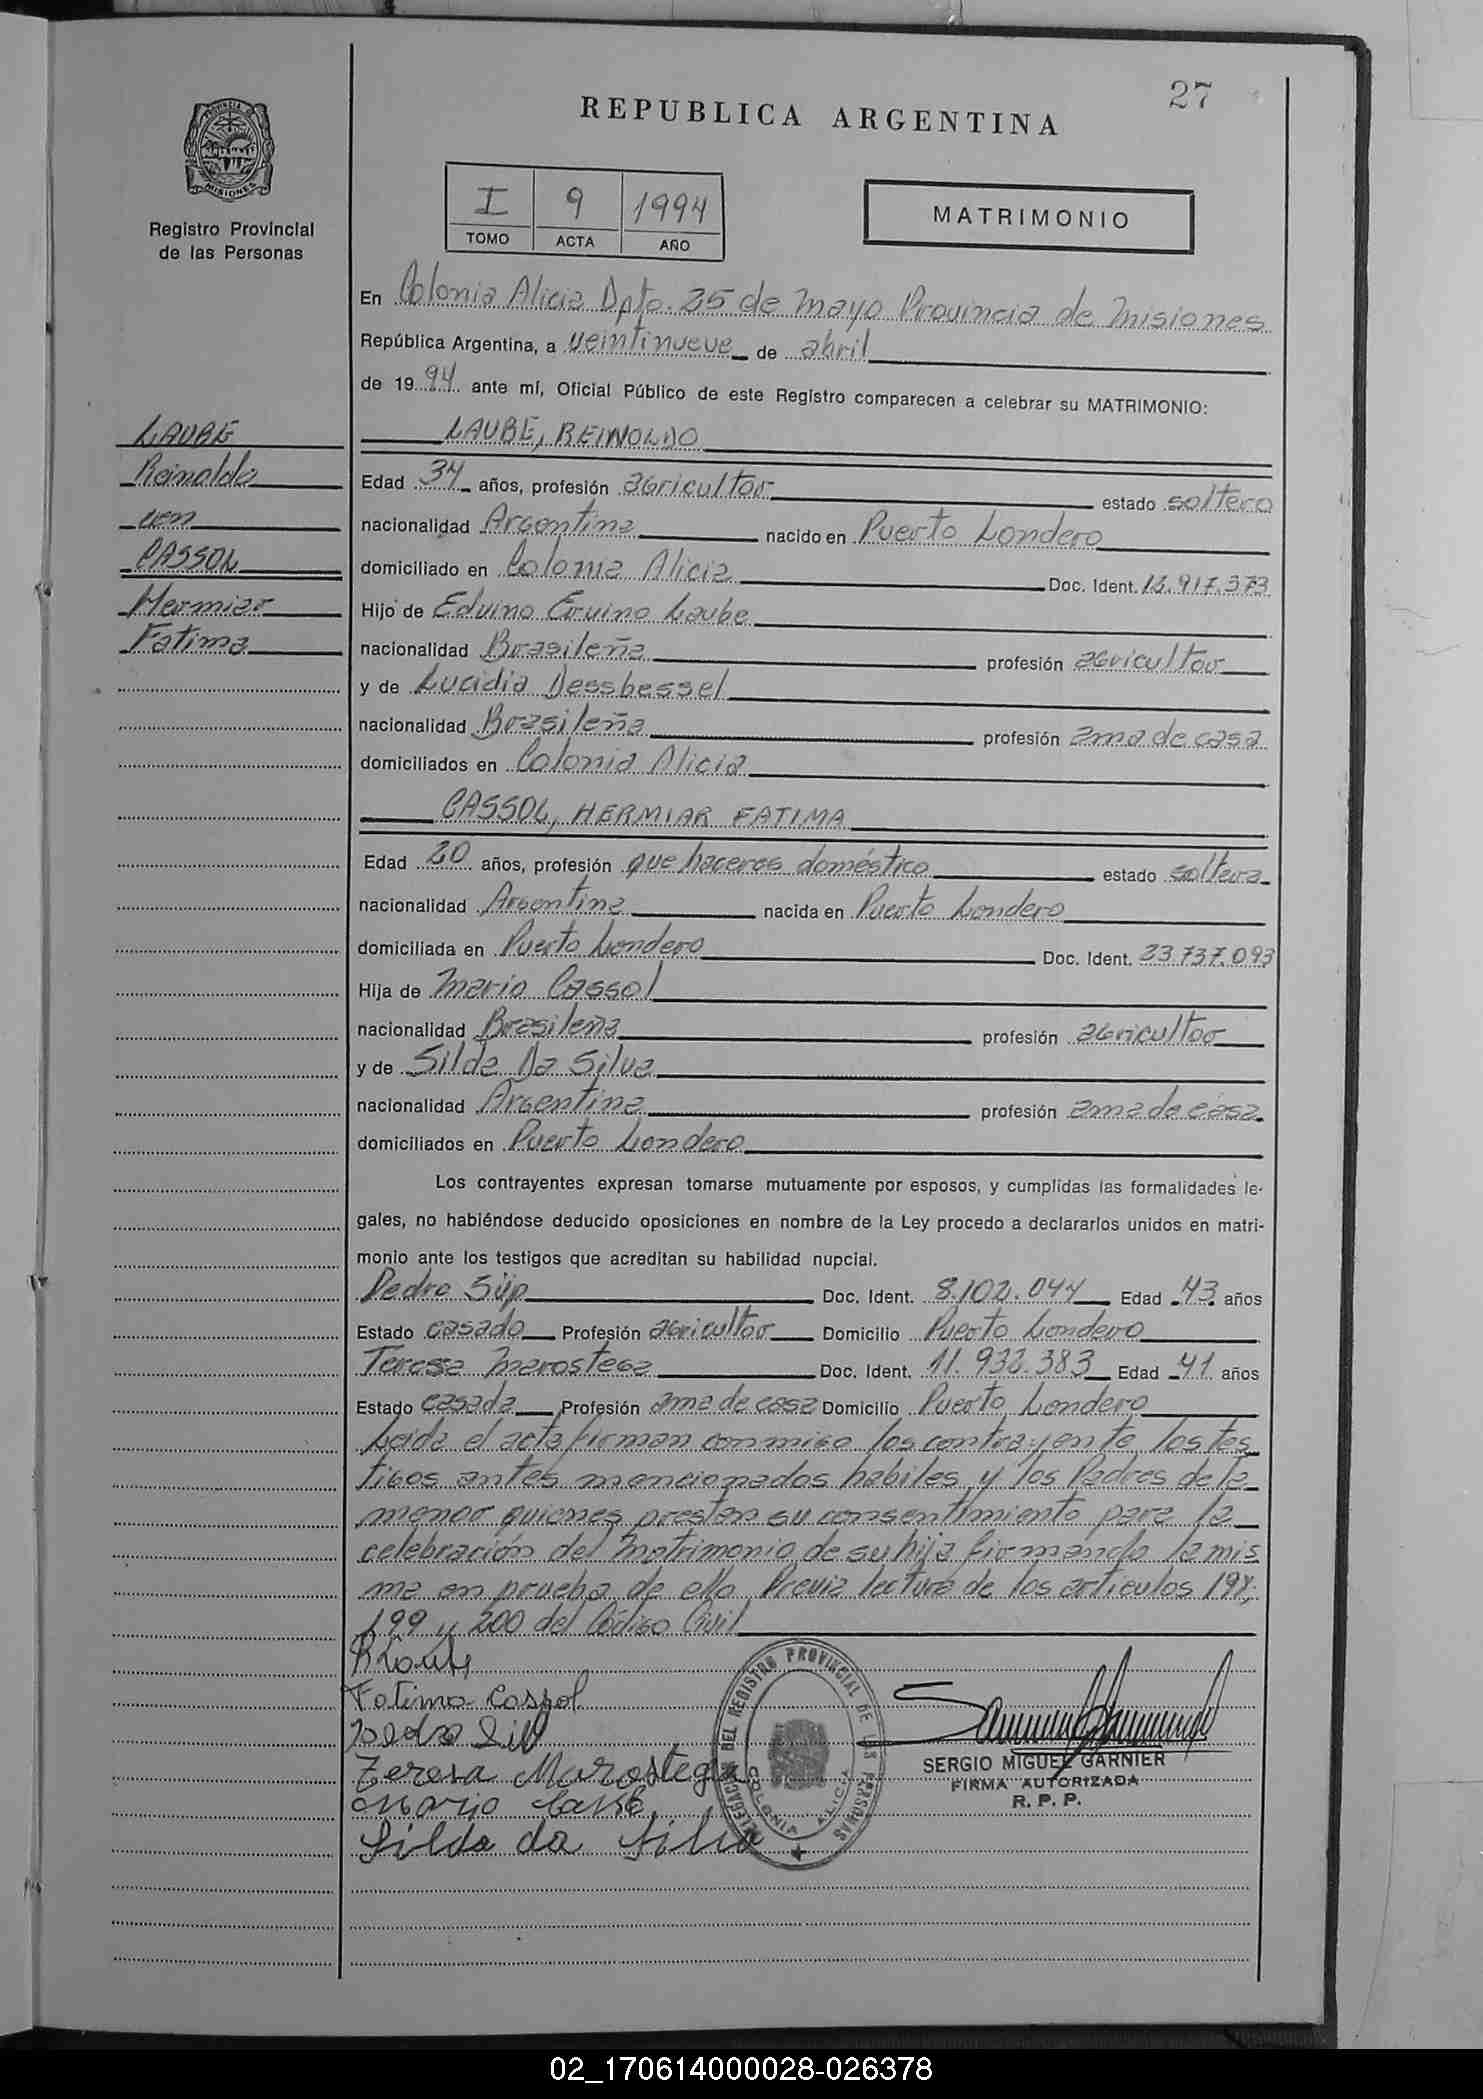 27
REPUBLICA ARGENTINA
PROVINCIA DE
MISIONES
Registro Provincial
de las Personas
I 9 1994
TOMO ACTA AÑO
MATRIMONIO
En Colonia Alicia Dpto. 25 de Mayo Provincia de Misiones
República Argentina, a veintinueve de abril
de 1994 ante mí, Oficial Público de este Registro comparecen a celebrar su MATRIMONIO:
LAUBE
Reinoldo
con
CASSOL
Hermiar
Fatima
LAUBE, REINOLDO
Edad 34 años, profesión agricultor estado soltero
nacionalidad Argentina nacido en Puerto Londero
domiciliado en Colonia Alicia Doc. Ident. 12.917.373
Hijo de Eduino Eruino Laube
nacionalidad Brasileña profesión agricultor
y de Lucidia Dessbessel
nacionalidad Brasileña profesión ama de casa
domiciliados en Colonia Alicia
CASSOL, HERMIAR FATIMA
Edad 20 años, profesión que haceres doméstico estado soltera
nacionalidad Argentina nacida en Puerto Londero
domiciliada en Puerto Londero Doc. Ident. 23.737.093
Hija de Mario Cassol
nacionalidad Brasileña profesión agricultor
y de Silda Da Silva
nacionalidad Argentina profesión ama de casa
domiciliados en Puerto Londero
Los contrayentes expresan tomarse mutuamente por esposos, y cumplidas las formalidades le-
gales, no habiéndose deducido oposiciones en nombre de la Ley procedo a declararlos unidos en matri-
monio ante los testigos que acreditan su habilidad nupcial.
Pedro Süp Doc. Ident. 8.102.044 Edad 43 años
Estado casado Profesión agricultor Domicilio Puerto Londero
Teresa Marostega Doc. Ident. 11.932.383 Edad 41 años
Estado casada Profesión ama de casa Domicilio Puerto Londero
Leida el acta firman conmigo los contrayente, los tes
tigos antes mencionados habiles y los Padres de la
menor quienes prestan su consentimiento para la
celebración del Matrimonio de su hija firmando la mis
ma en prueba de ello. Previa lectura de los artículos 198,
199 y 200 del Código Civil
R Laube
Fatima Cassol
Pedro Süp
Teresa Marostega
Mario Cassol
Silda da Silva
DELEGACION DEL REGISTRO PROVINCIAL DE LAS PERSONAS
COLONIA ALICIA
SERGIO MIGUEL GARNIER
FIRMA AUTORIZADA
R. P. P.
02_170614000028-026378